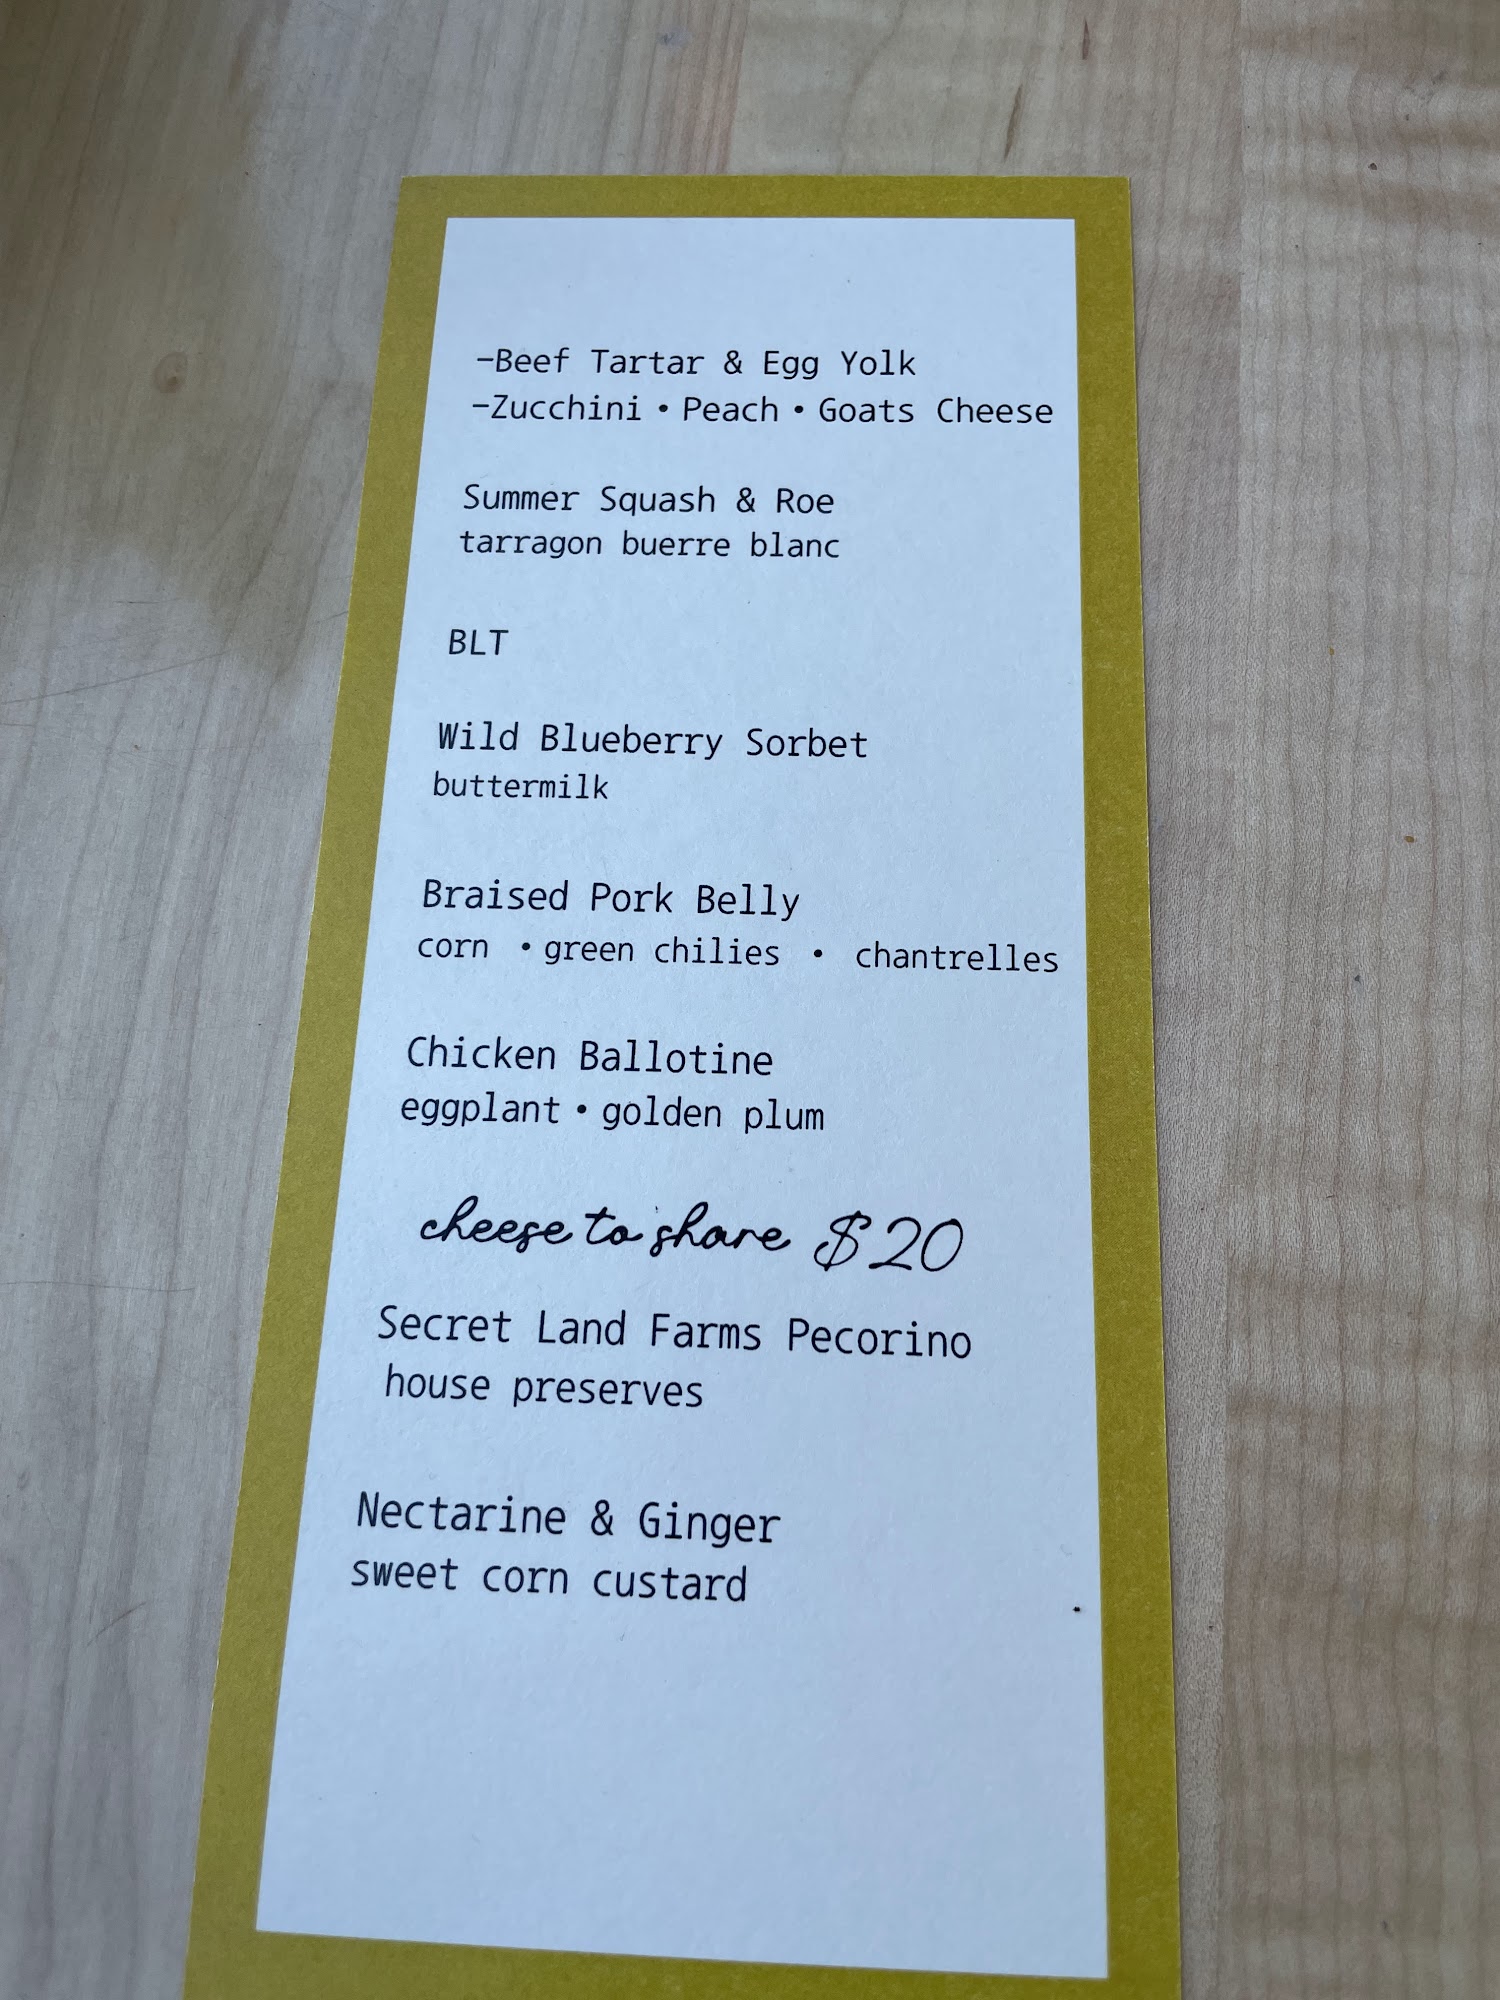 -Beef Tartar & Egg Yolk
-Zucchini • Peach • Goats Cheese
Summer Squash & Roe
tarragon buerre blanc
BLT
Wild Blueberry Sorbet
buttermilk
Braised Pork Belly
corn • green chilies • chantrelles
Chicken Ballotine
eggplant • golden plum
cheese to share $20
Secret Land Farms Pecorino
house preserves
Nectarine & Ginger
sweet corn custard